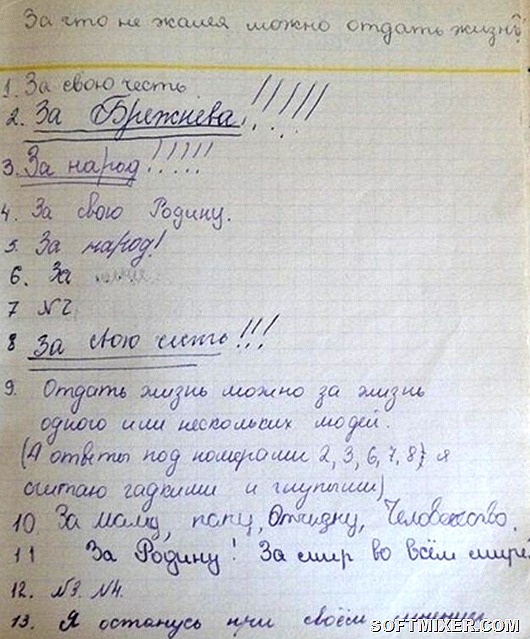 За что не жалея можно отдать жизнь?
1. За свою честь.
2. За Брежнева!!!!!
3. За народ!!!!!
4. За свою Родину.
5. За народ!
6. За
7 №2
8 За свою честь!!!
9. Отдать жизнь можно за жизнь
одного или нескольких людей.
(А ответы под номерами 2, 3, 6, 7, 8, я
считаю гадкими и глупыми)
10. За маму, папу, Отчизну, Человечество.
11 За Родину! За мир во всём мире!
12. №3. №4.
13. Я останусь при своём мнении
SOFTMIXER.COM